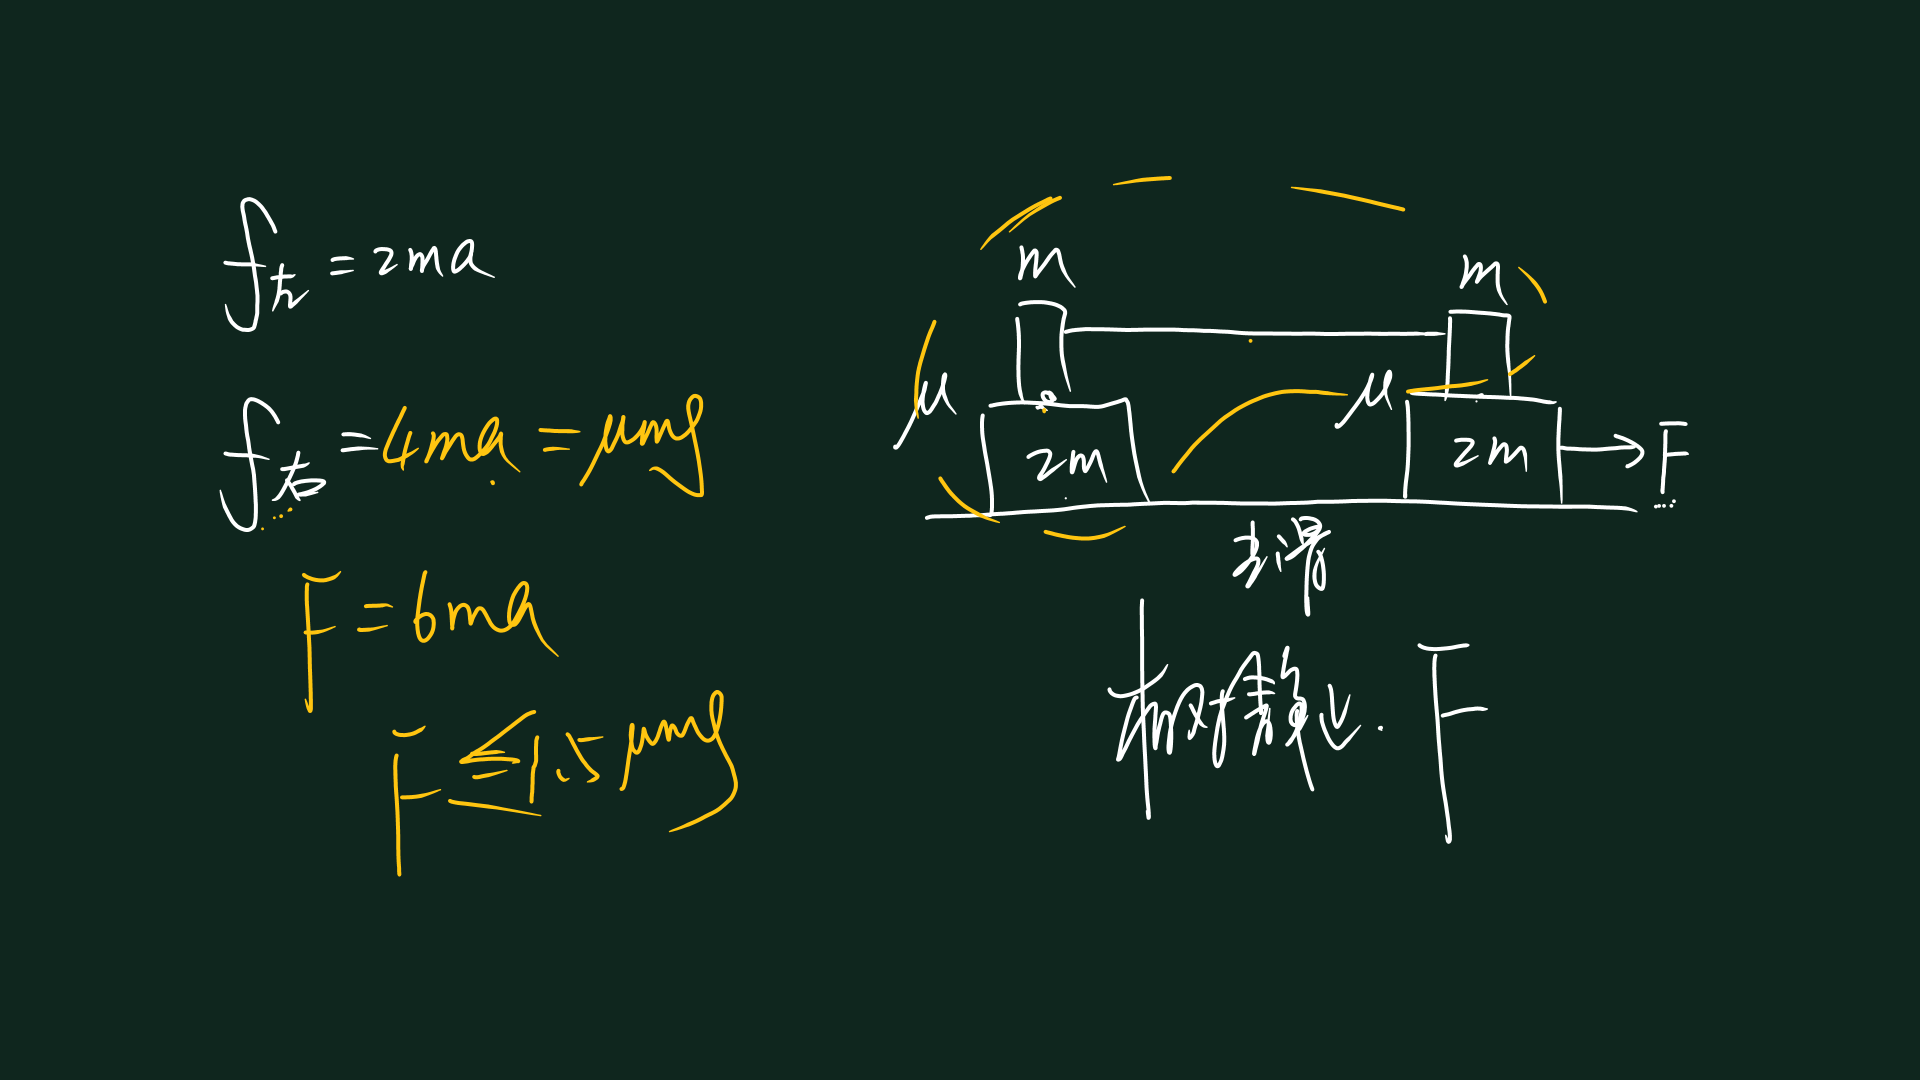 f左 = 2ma
f右 = 4ma = μmg
F = 6ma
F ≤ 1.5 μmg
m
m
μ
μ
2m
2m
F
光滑
相对静止. F